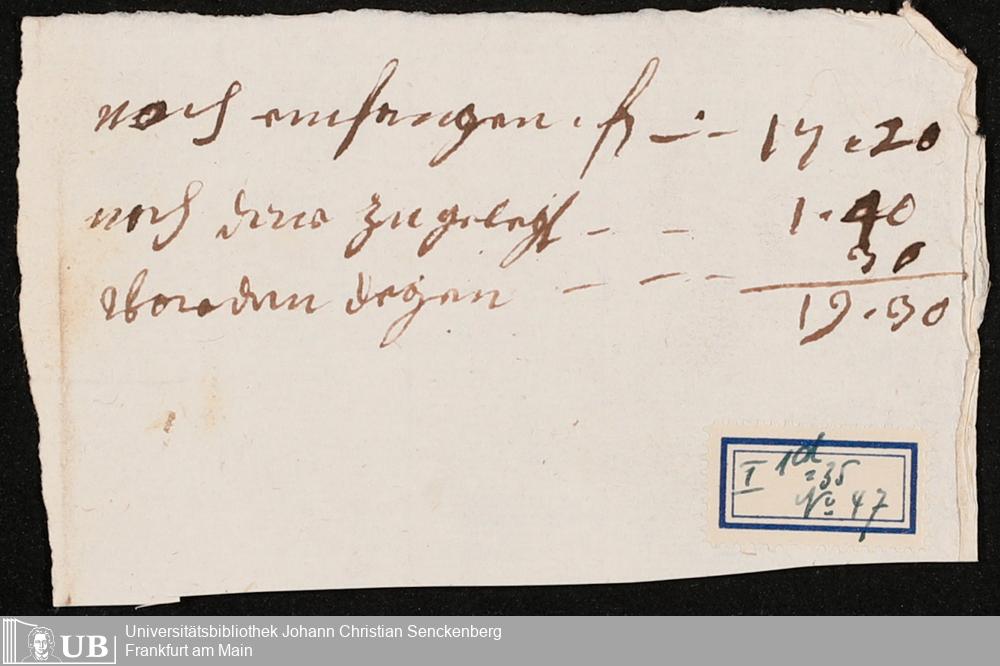 noch emfangen . fl — 17 . 20
noch darzu zu gelegt — — 1 . 40
30
den degen — — — 19 . 30
I 1d
= 35
No 47
UB Universitätsbibliothek Johann Christian Senckenberg
Frankfurt am Main